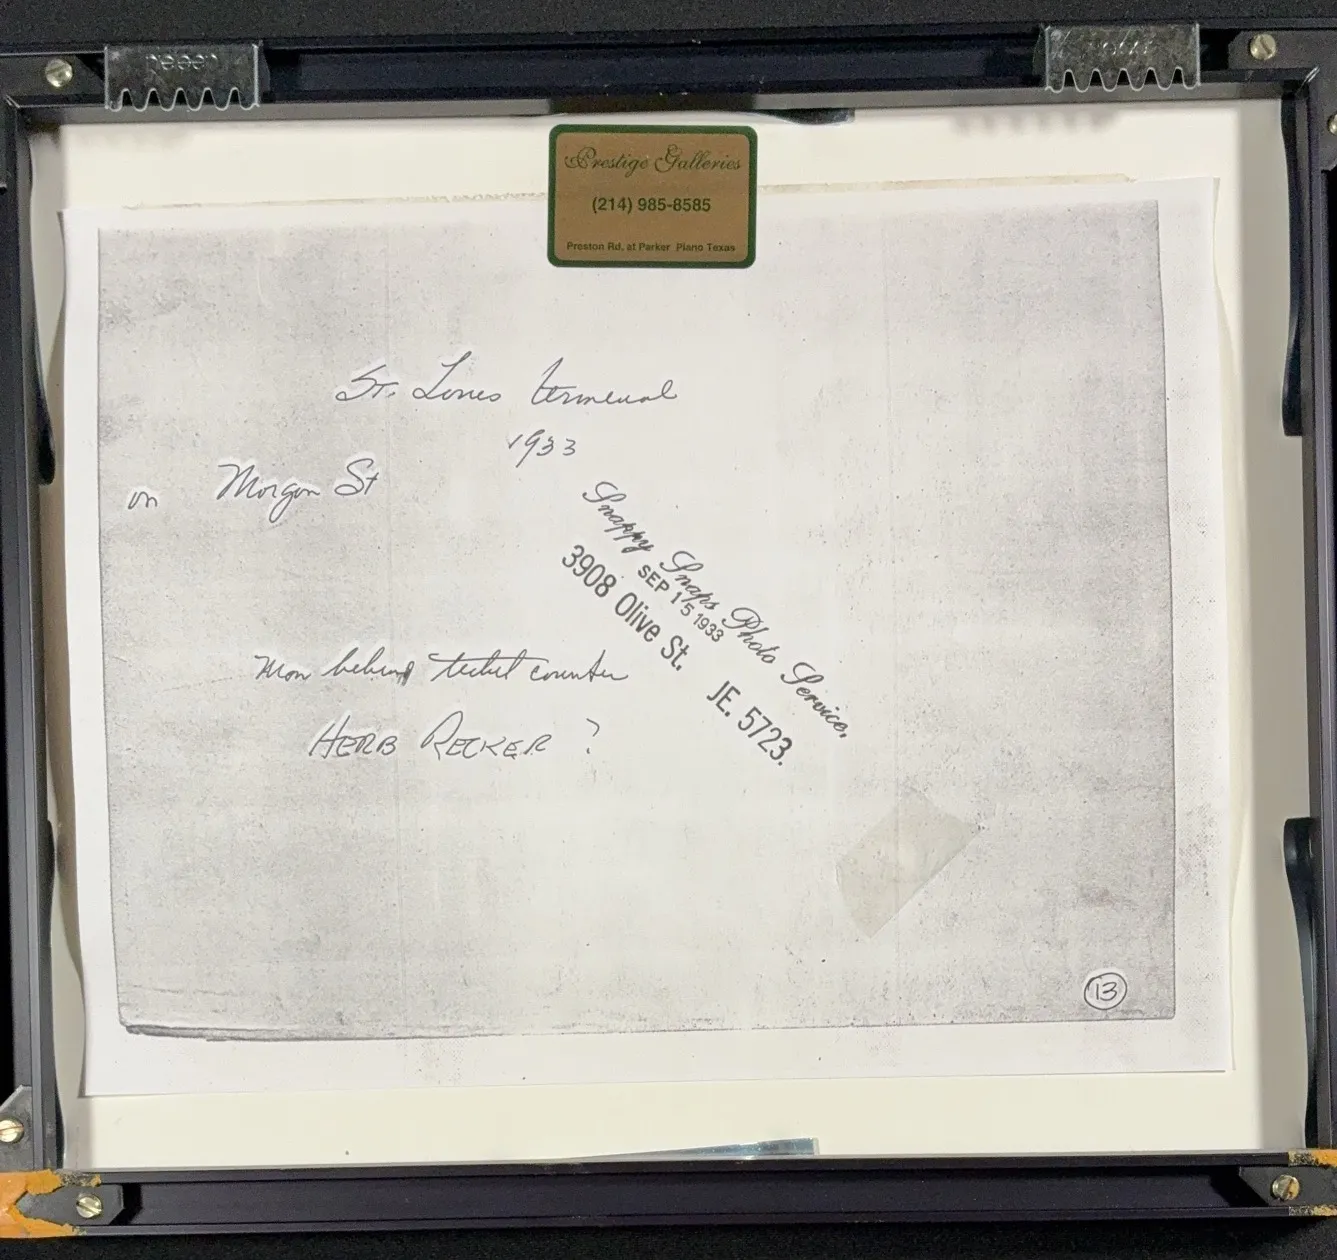 Prestige Galleries
(214) 985-8585
Preston Rd. at Parker Plano Texas
St. Louis terminal
1933
on Morgan St
Snappy Snaps Photo Service,
SEP 15 1933
3908 Olive St. JE. 5723.
Man behind ticket counter
HERB RECKER ?
13